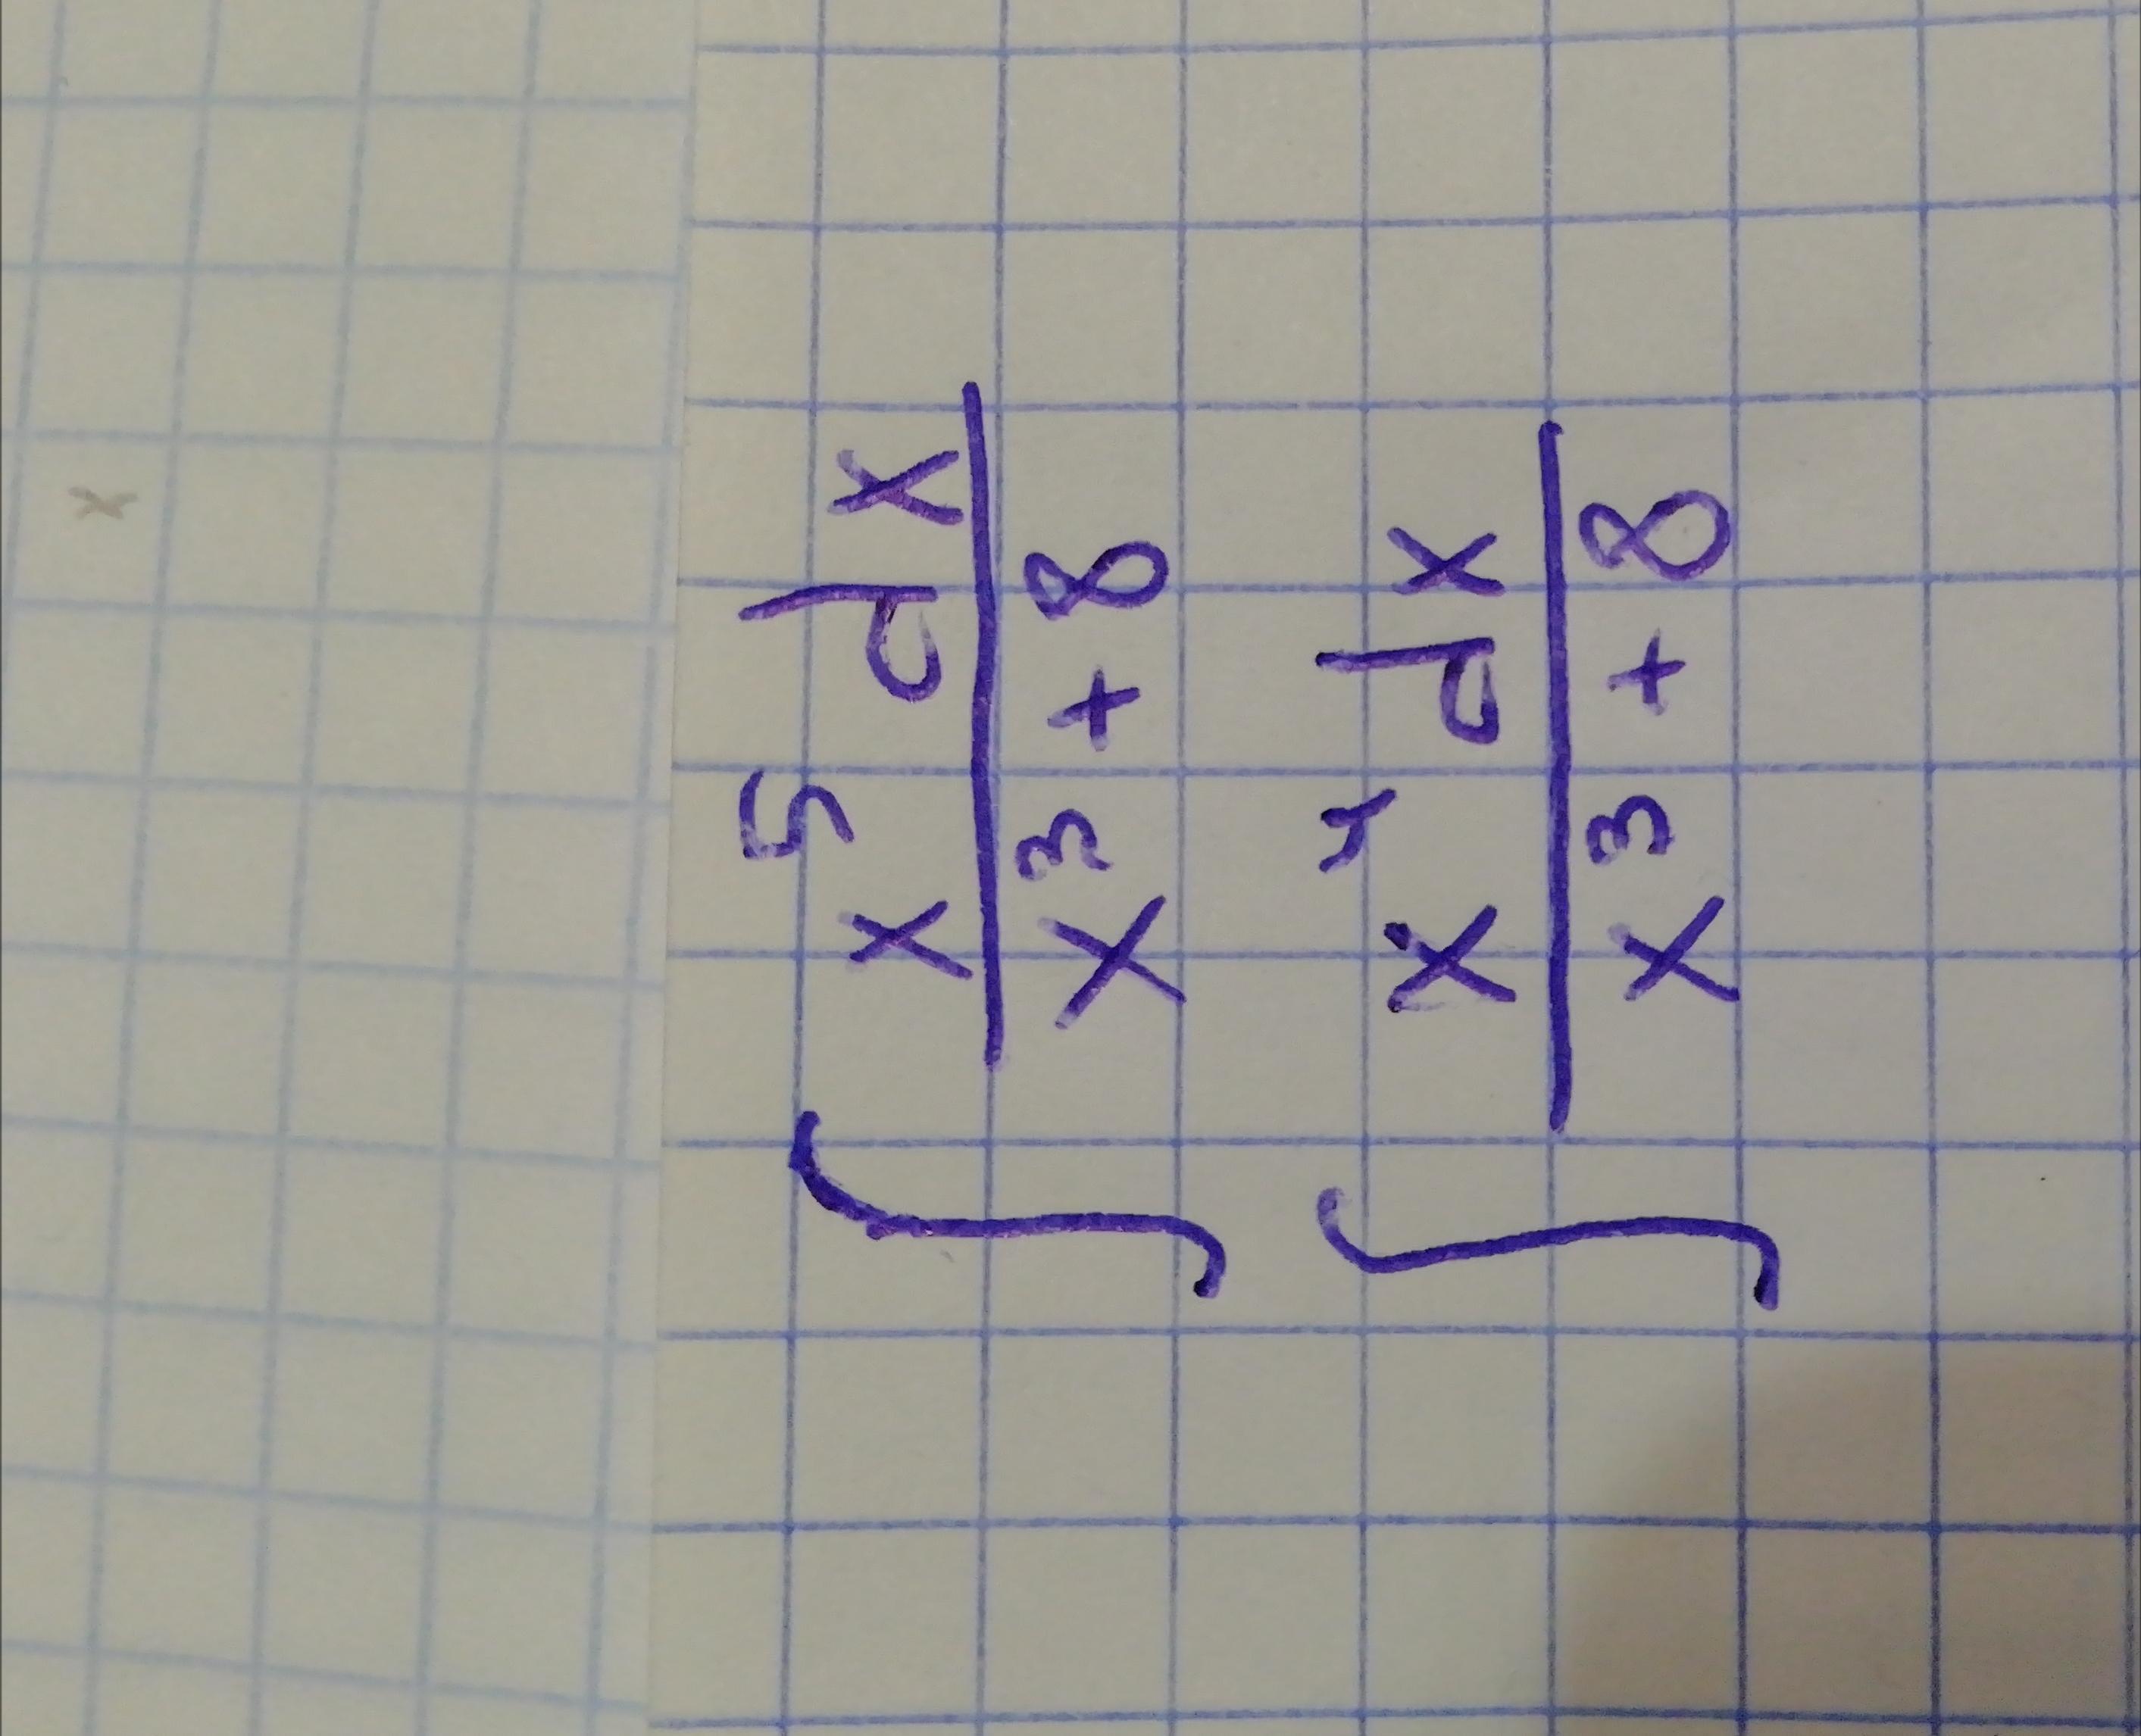 ∫ x⁵ dx / x³ + 8
∫ x⁴ dx / x³ + 8